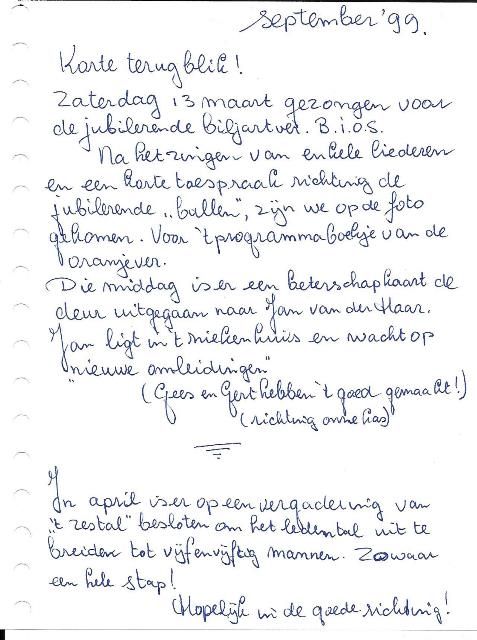 september '99.
Korte terugblik!
Zaterdag 13 maart gezongen voor
de jubilerende biljartver. B.i.o.S.
Na het zingen van enkele liederen
en een korte toespraak richting de
jubilerende „ballen", zijn we op de foto
gekomen. Voor 't programmaboekje van de
oranjever.
Die middag is er een beterschapkaart de
deur uitgegaan naar Jan van der Haar.
Jan ligt in 't ziekenhuis en wacht op
"nieuwe omleidingen"
(Gees en Gert hebben 't goed gemaakt!)
(richting onne kas)
In april is er op een vergadering van
"t zestal" besloten om het ledental uit te
breiden tot vijfenvijftig mannen. Zowaar
een hele stap!
Hopelijk in de goede richting!